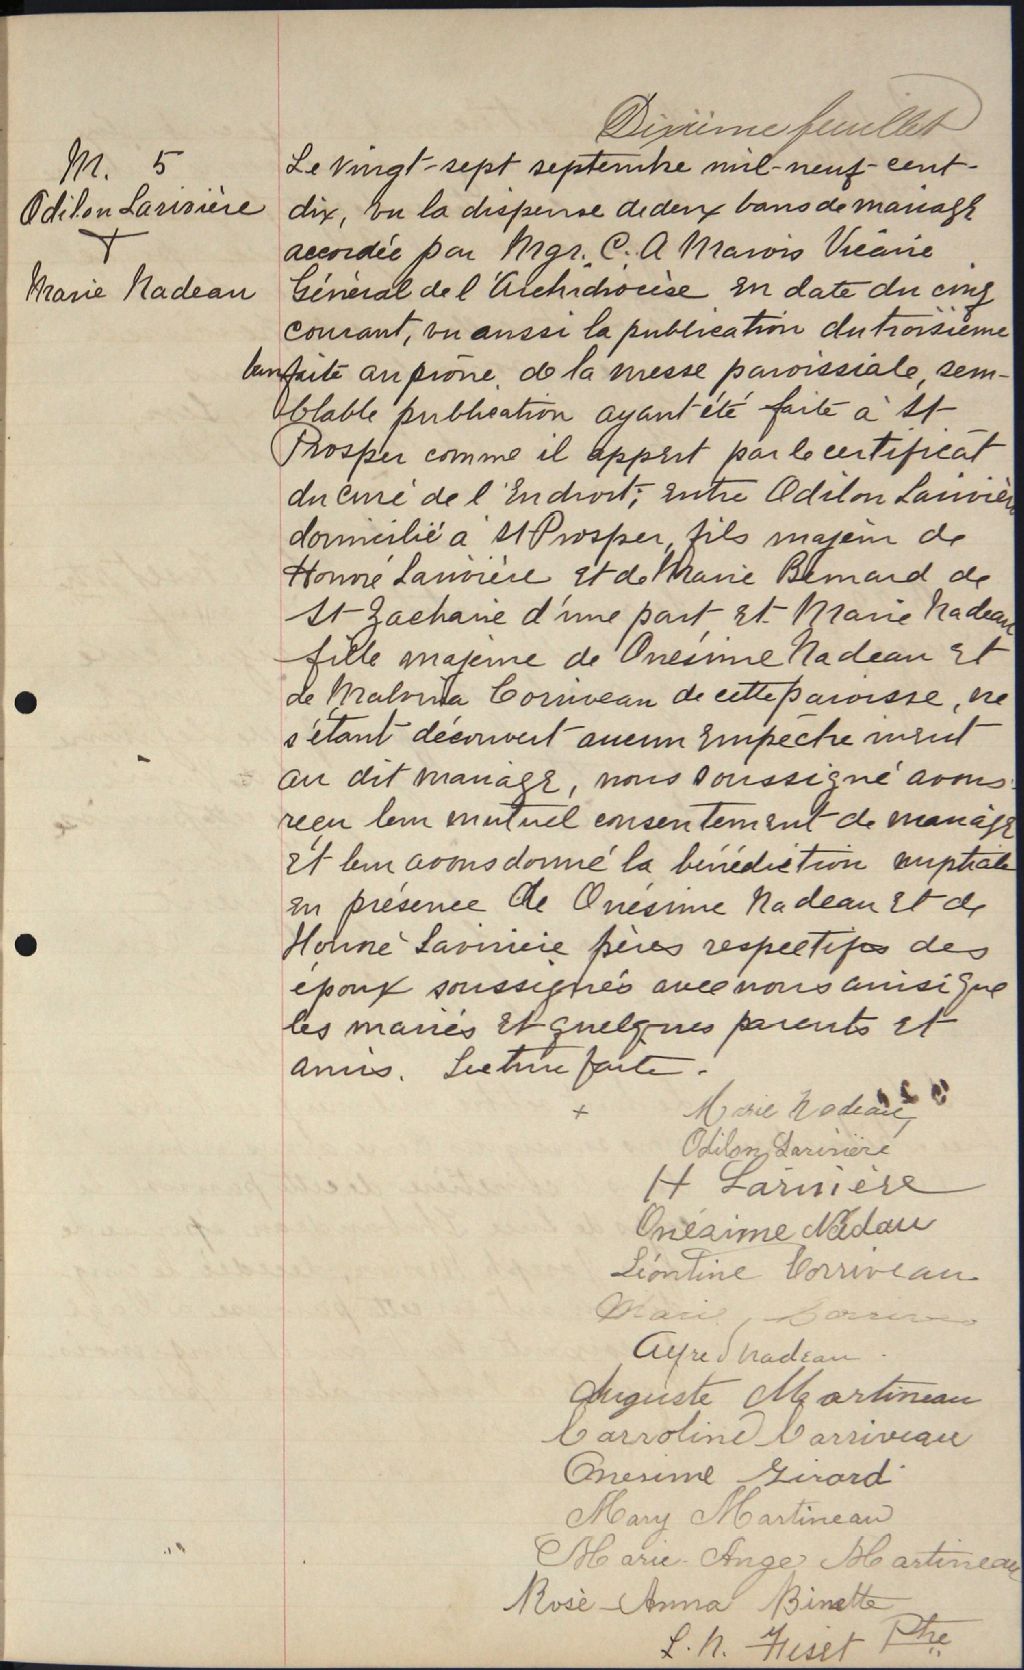 Dixième feuillet
M. 5
Odilon Larivière
+
Marie Nadeau
Le vingt-sept septembre mil-neuf-cent-
dix, vu la dispense de deux bans de mariage
accordée par Mgr. C. A Marois Vicaire
Général de l'Archidiocèse en date du cinq
courant, vu aussi la publication du troisième
ban faite au prône de la messe paroissiale, sem-
blable publication ayant été faite à St
Prosper comme il appert par le certificat
du curé de l'endroit; entre Odilon Larivière
domicilié à St Prosper, fils majeur de
Honoré Larivière et de Marie Bernard de
St Zacharie d'une part et Marie Nadeau
fille majeure de Onésime Nadeau et
de Malvina Corriveau de cette paroisse, ne
s'étant découvert aucun empêchement
au dit mariage, nous soussigné avons
reçu leur mutuel consentement de mariage
et leur avons donné la bénédiction nuptiale
en présence de Onésime Nadeau et de
Honoré Larivière pères respectifs des
époux soussignés avec nous ainsi que
les mariés et quelques parents et
amis. Lecture faite.
+ Marie Nadeau
Odilon Larivière
H Larivière
Onésime Nadau
Léontine Corriveau
Marie
Alfred Nadeau
Auguste Martineau
Carroline Carriveau
Onesime Girard
Mary Martineau
Marie-Ange Martineau
Rosè-Anna Binette
L. N. Fiset Ptre